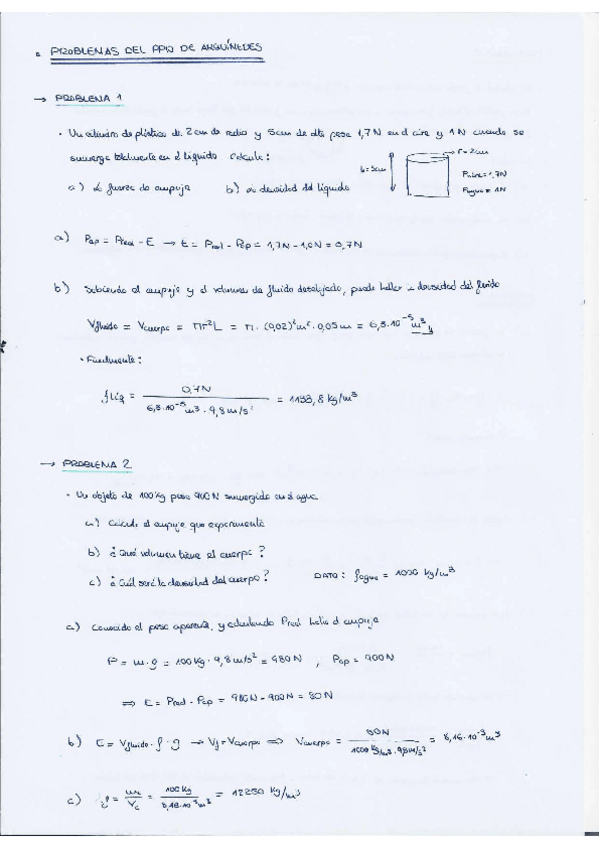 PROBLEMAS DEL PPIO DE ARQUÍMEDES
→ PROBLEMA 1
· Un cilindro de plástico de 2cm de radio y 5cm de alto pesa 1,7N en el aire y 1N cuando se
sumerge totalmente en el líquido calcula:
r=2cm
h=5cm
Paire=1,7N
Pagua=1N
a) La fuerza de empuje b) La densidad del líquido
a) Pap = Preal - E → E = Preal - Pap = 1,7N - 1,0N = 0,7N
b) Sabiendo el empuje y el volumen de fluido desalojado, puedo hallar la densidad del fluido
Vfluido = Vcuerpo = πr²L = π·(0,02)²m²·0,05m = 6,3·10⁻⁵m³
· Finalmente:
ρLíq = 0,7N / 6,3·10⁻⁵m³·9,8m/s² = 1133,8 kg/m³
→ PROBLEMA 2
· Un objeto de 100kg pesa 900N sumergido en el agua
a) Calcula el empuje que experimenta
b) ¿Qué volumen tiene el cuerpo?
c) ¿Cuál será la densidad del cuerpo? DATO: ρagua = 1000 kg/m³
a) Conocido el peso aparente, y calculando Preal hallo el empuje
P = m·g = 100kg·9,8m/s² = 980N , Pap = 900N
⇒ E = Preal - Pap = 980N - 900N = 80N
b) E = Vfluido·ρ·g → Vf = Vcuerpo ⇒ Vcuerpo = 80N / 1000kg/m³·9,8m/s² = 8,16·10⁻³m³
c) ρ = mc/Vc = 100kg / 8,16·10⁻³m³ = 12250 kg/m³